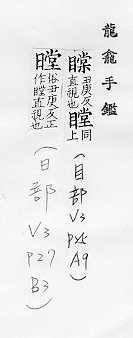 龍龕手鑑
丑庚反同
直視也瞠上
(目部
V3
A9)
俗丑庚反正
作瞠直視也
(日部
V3
P27
B3)